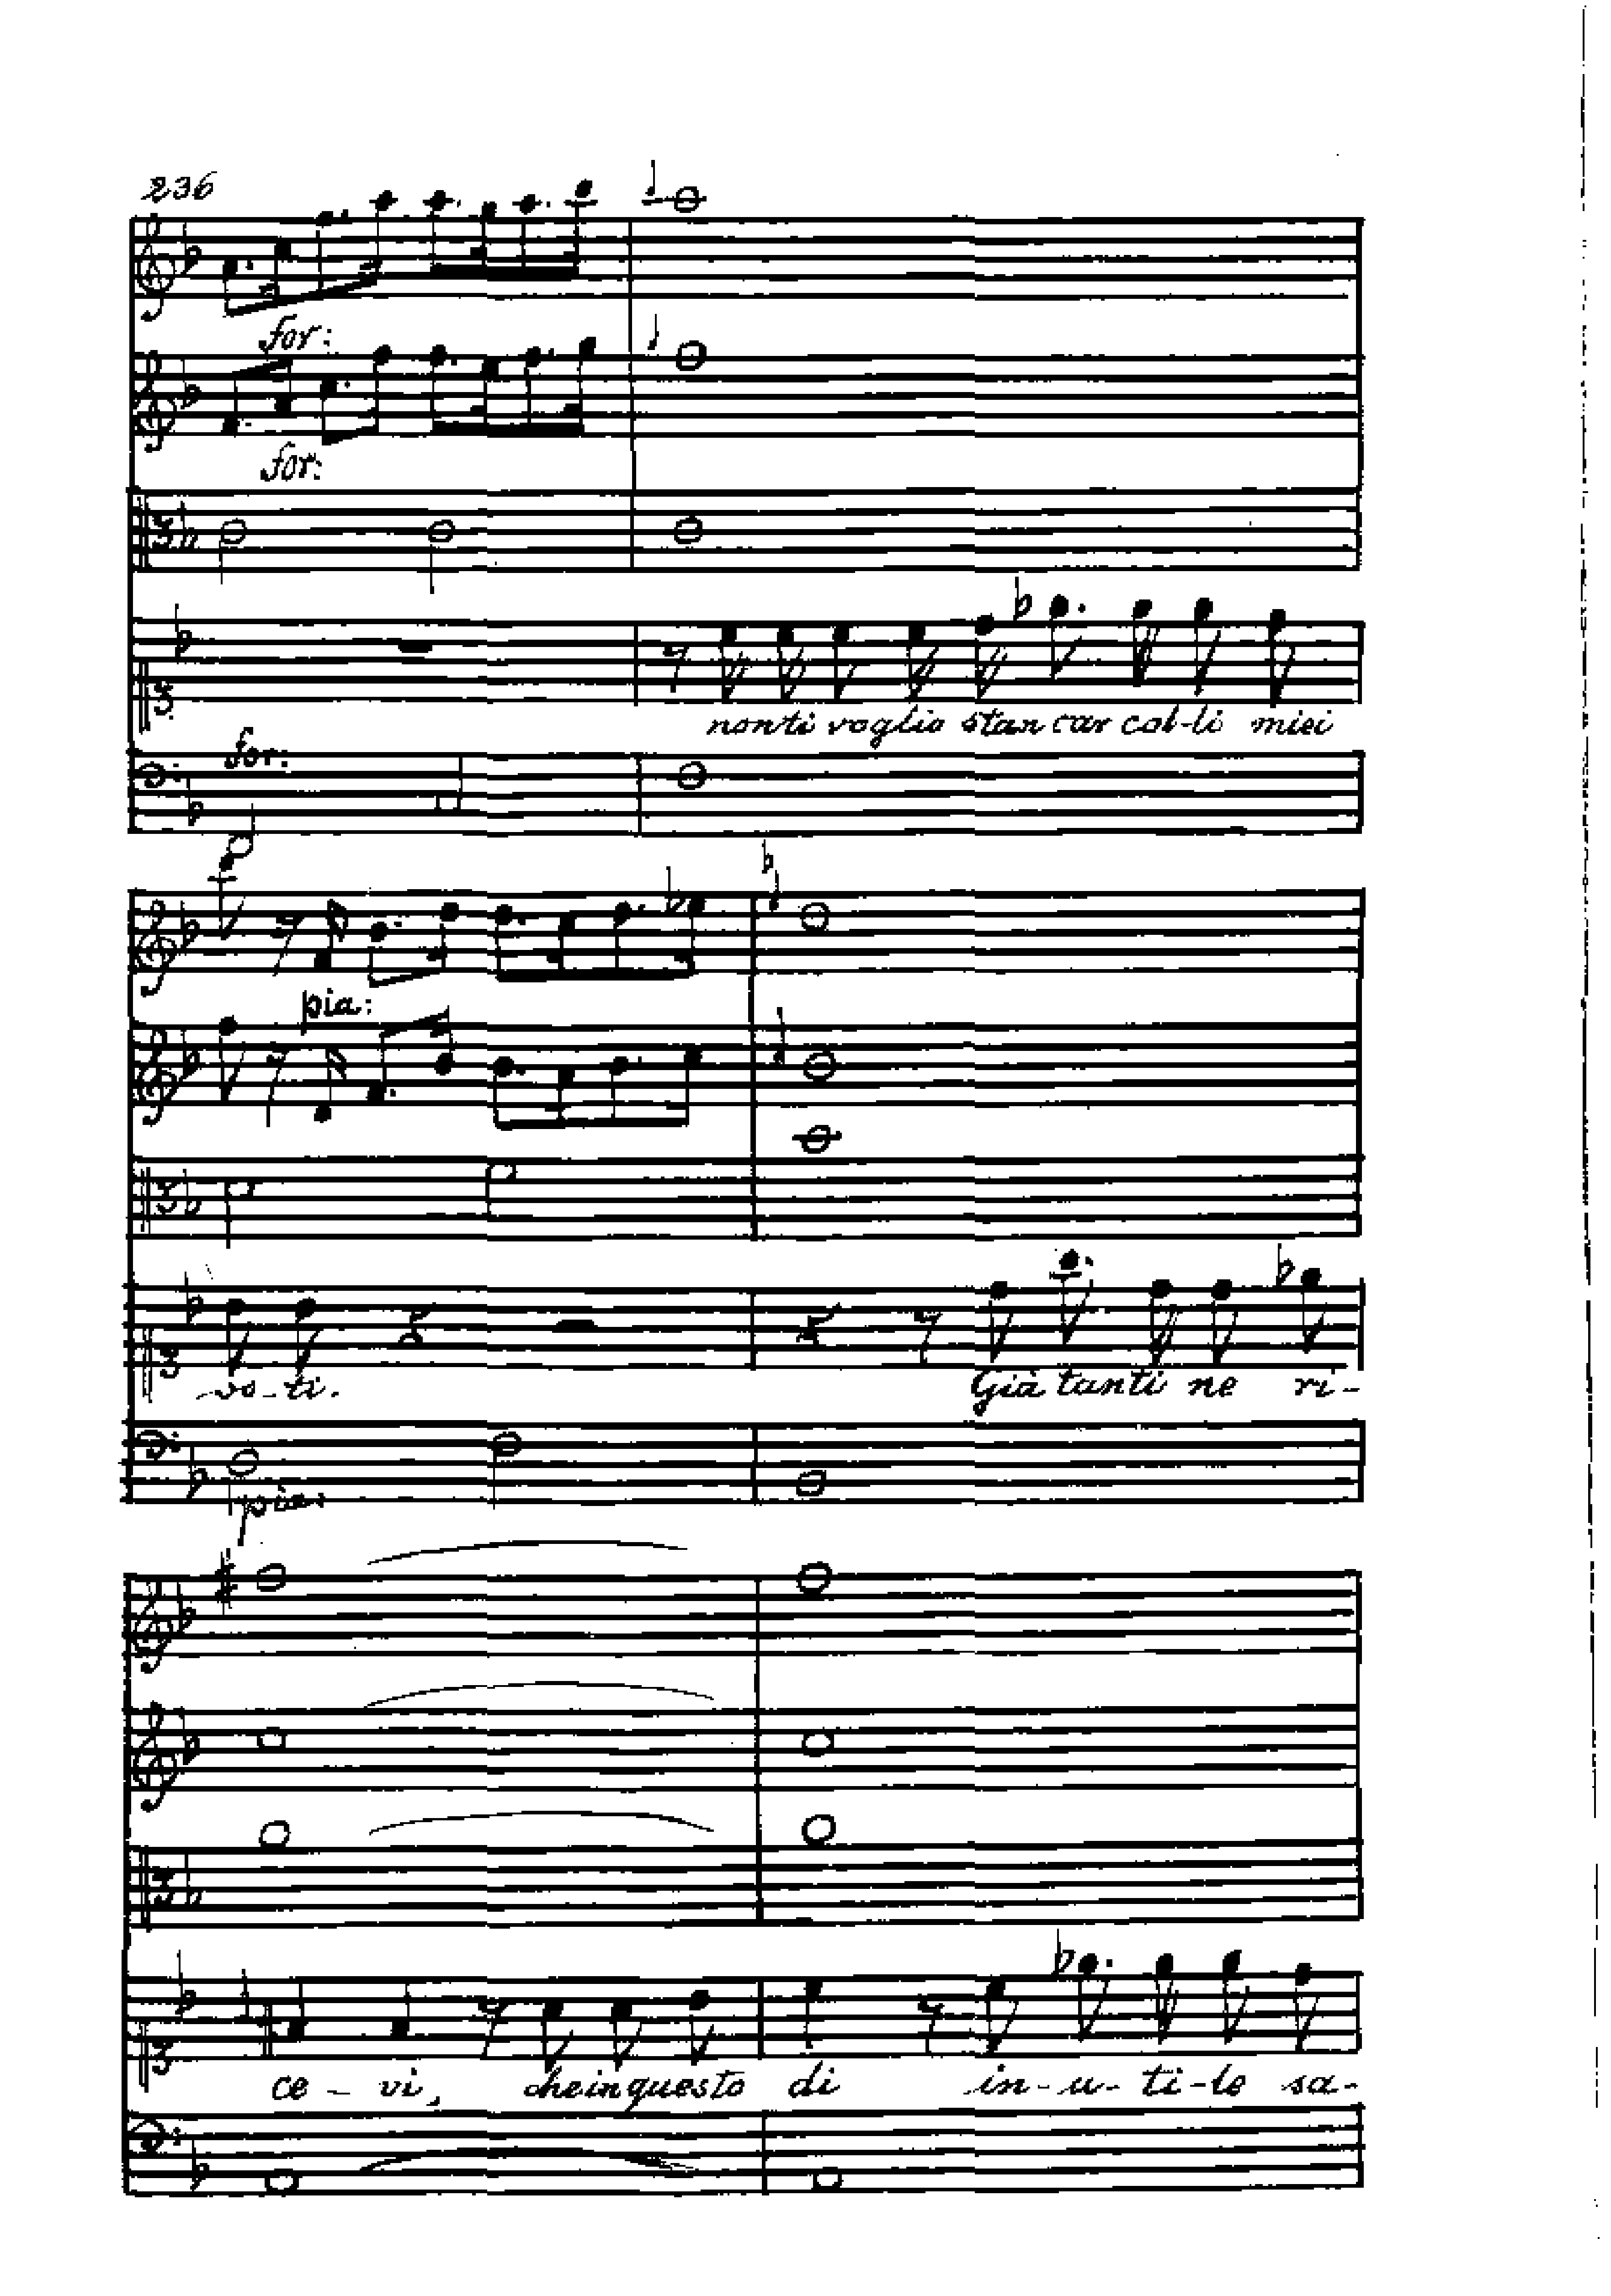 236
for:
for:
non ti voglio stan car col-li miei
for:
pia:
-vo-ti. Già tanti ne ri-
pia:
ce-vi, che in questo di in-u-ti-le sa-